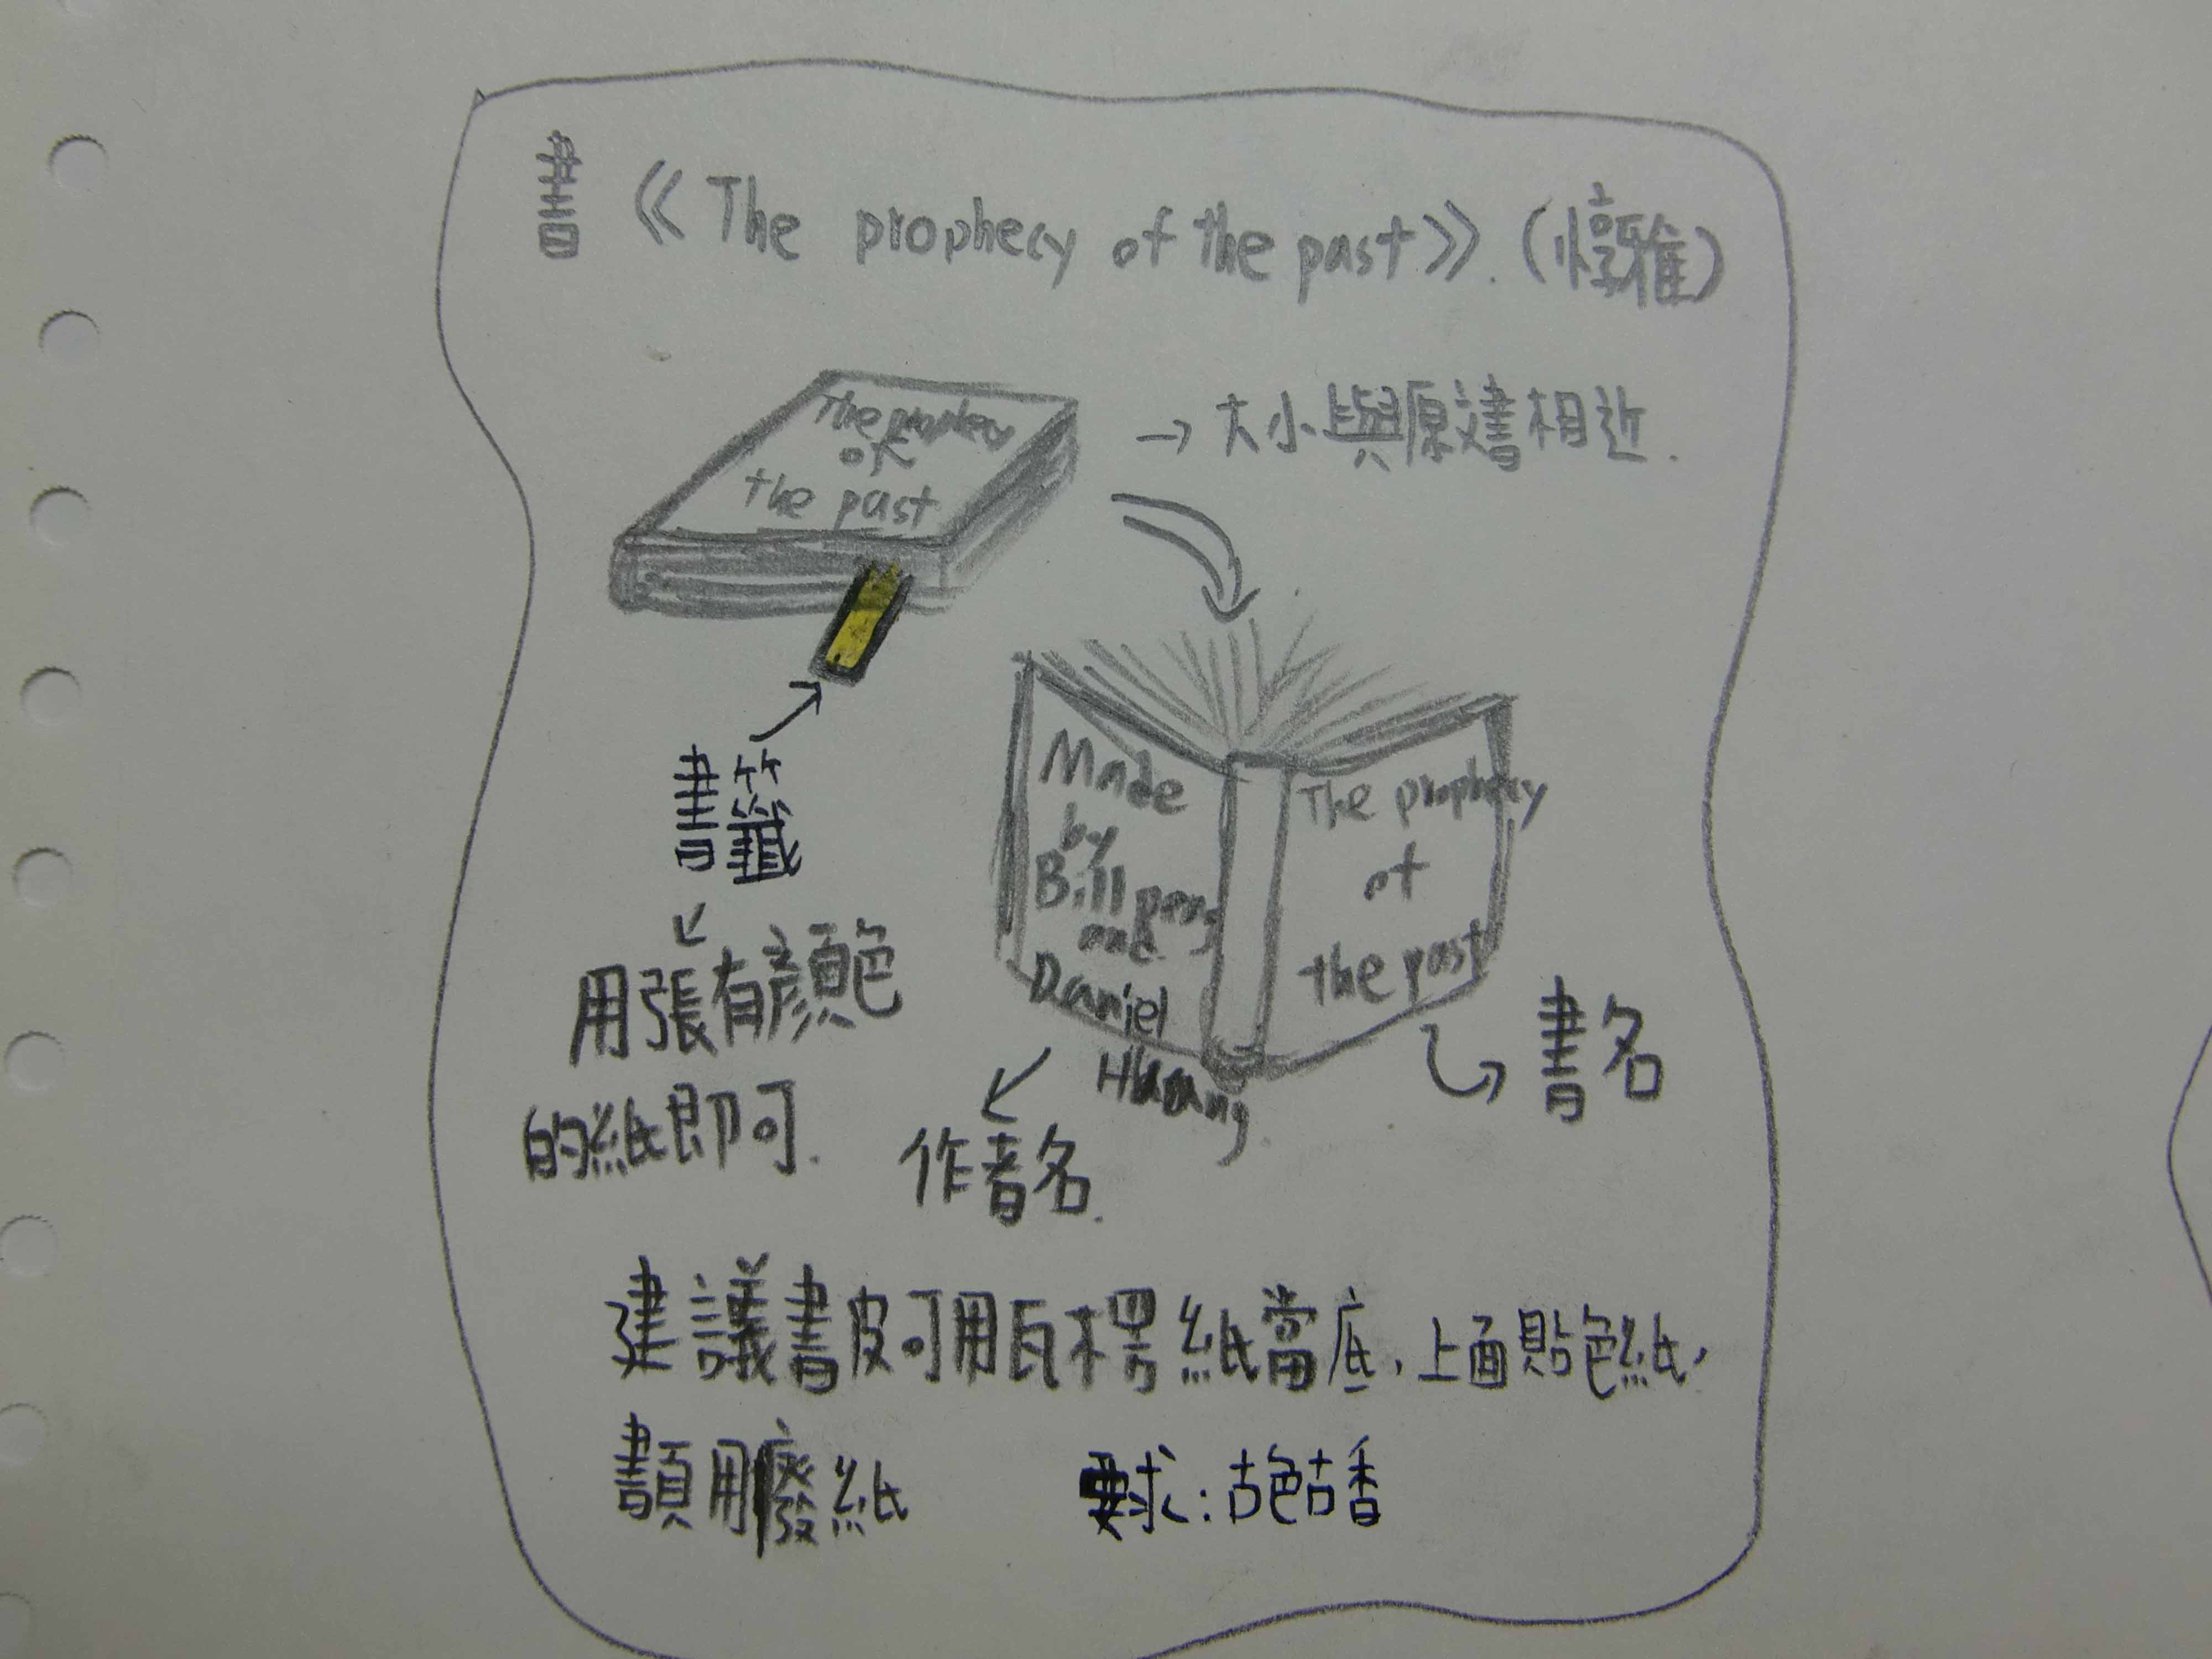 書《The prophecy of the past》.(惇雅)
The prophecy
of
the past
→大小與原書相近.
書籤
用張有顏色
的紙即可.
Made
by
Bill peng
and
Daniel
Huang.
The prophecy
of
the past
作者名.
書名
建議書皮可用瓦楞紙當底,上面貼色紙,
書頁用廢紙
要求:古色古香